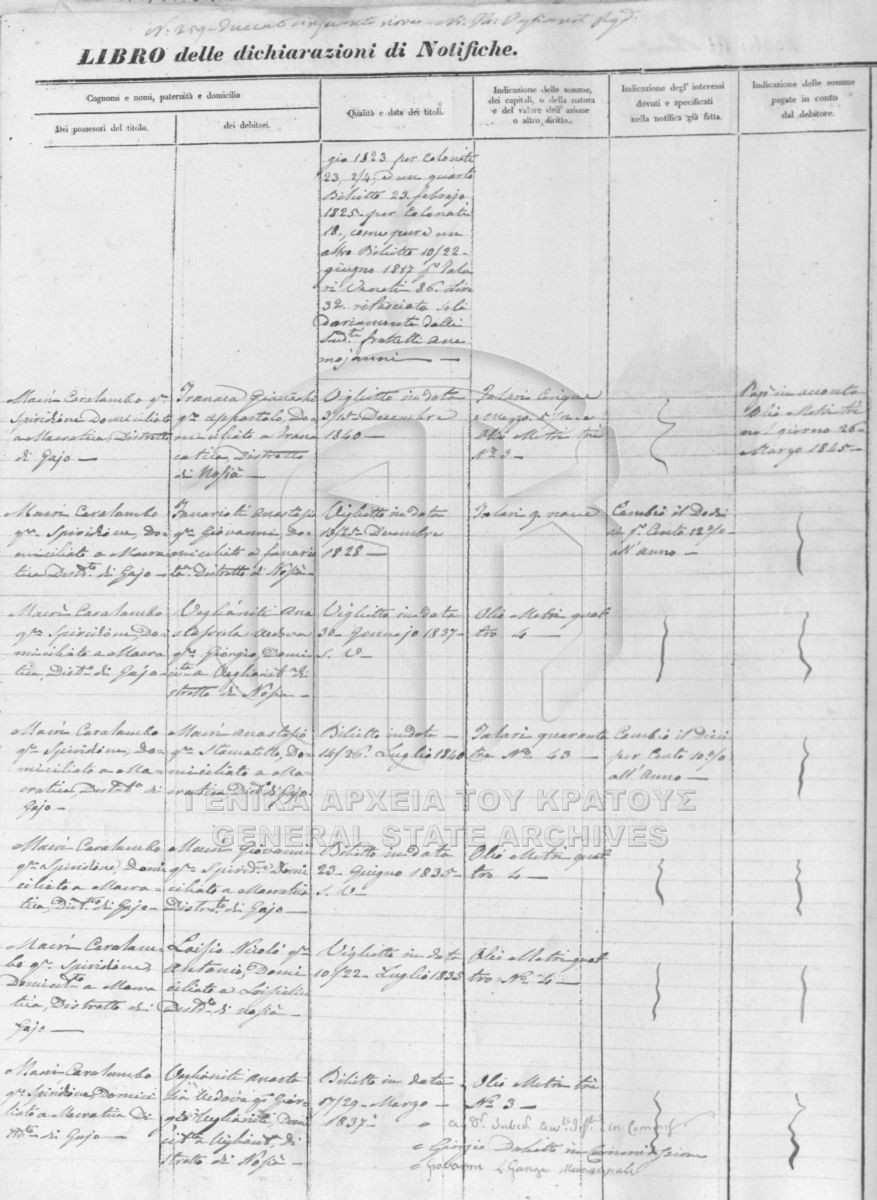 LIBRO delle dichiarazioni di Notifiche.
Cognomi e nomi, paternità e domicilio
Dei possesori del titolo.
dei debitori.
Qualità e data dei titoli.
Indicazione delle somme,
dei capitali, o della natura
e del valore dell' azione
o altro diritto.
Indicazione degl' interessi
dovuti e specificati
nella notifica già fatta.
Indicazione delle somme
pagate in conto
dal debitore.
gio 1823 per Colonati
23, 2/4, e un quarto
Biglietto 23. febrajo
1825. per Colonati
18., come pure un
altro Biglietto 10/22-
giugno 1817 pr Tala
ri Veneti 86. Lire
32. rilasciato soli
dariamente dalli
Sudti fratelli
mojanni —
Macri Caralambo qm
Spiridione Domiciliato
a Macratica, Distretto
di Gajo —
qm Appostolo, Do-
miciliato a
catica, Distretto
di
Viglietto in data
Decembre
1840 —
Talari Cinque
e mezzo 5 1/2 e
Olio Metri tre
No 3 —
Pagò in acconto
Olio Metri
nel giorno 26-
Marzo 1845-
Macri Caralambo
qm Spiridione, Do-
miciliato a Macra
tica Distto di Gajo —
Anastasio
qm Giovanni, Do-
miciliato a
Distretto di
Viglietto in data
13/25 Decembre
1828 —
Talari 9. nove
Cambio il Dodi
ci pr Cento 12 %
all'anno —
Macri Caralambo
qm Spiridione, Do-
miciliato a Macra
tica, Disto di Gajo-
Veglianiti Ana
vedova
qm Giorgio, Domi
a Veglianit Di
stretto di
Viglietto in data
30- Gennajo 1837-
S. V—
Olio Metri quat
tro 4 —
Macri Caralambo
qm Spiridione, Do-
miciliato a Ma-
cratica, Distto di
Gajo —
Macri Anastasio
qm Stamatello, Do-
miciliato a Ma-
cratica Disto di Gajo
Biglietto in data —
14/26. Luglio 1840
Talari quaranta
tre No 43 —
Cambio il Dieci
per Cento 10 %
all'Anno —
Macri Caralambo
qm Spiridione, Domi
ciliato a Macra-
tica, Disto di Gajo-
Macri Giovanni
qm Spiridne Domi
ciliato a Macratica
Distrto di Gajo —
Biglietto in data
23- Giugno 1835-
S. V—
Olio Metri quat
tro 4 —
Macri Caralam-
bo qm Spiridione,
Domicilto a Macra
tica, Distretto di
Gajo —
Loisio Nicolò qm
Antonio, Domi
ciliato a
Distto di
Viglietto in data
10/22 Luglio 1835
Olio Metri quat
tro No 4 —
Macri Caralambo
qm Spiridione, Domici
liato a Macratica Di
stto di Gajo —
Veglianiti Anasta
sia Vedova qm Gior
gio Veglianiti, Domi
a Veglianit, Di
stretto di
Biglietto in data
17/29- Marzo —
1837-
Olio Metri tre
No 3 —
in Commis
Giorgio in Commissione
Giovanni Municipale
ΓΕΝΙΚΑ ΑΡΧΕΙΑ ΤΟΥ ΚΡΑΤΟΥΣ
GENERAL STATE ARCHIVES